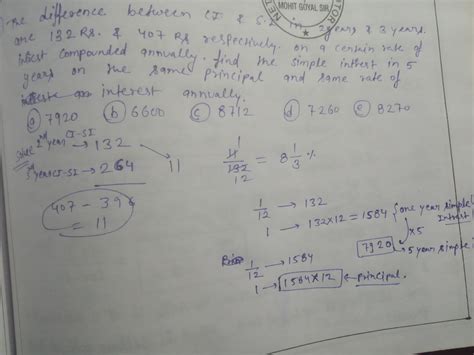 MOHIT GOYAL SIR
The difference between CI & S.I in 2 years & 3 years
are 132 RS. & 407 Rs respectively. on a certain rate of
intrest compounded annually. find the simple intrest in 5
years on the same principal and same rate of
interest annually.
(a) 7920 (b) 6600 (c) 8712 (d) 7260 (e) 8270
2nd year CI-SI → 132
3rd year CI-SI → 264
11
407 - 396
= 11
1
11/132 = 8 1/3 %
12
1/12 → 132
1 → 132×12 = 1584 one year simple Intrest
×5
7920 → 5 year simple
1/12 → 1584
1 → 1584×12 ← Principal.